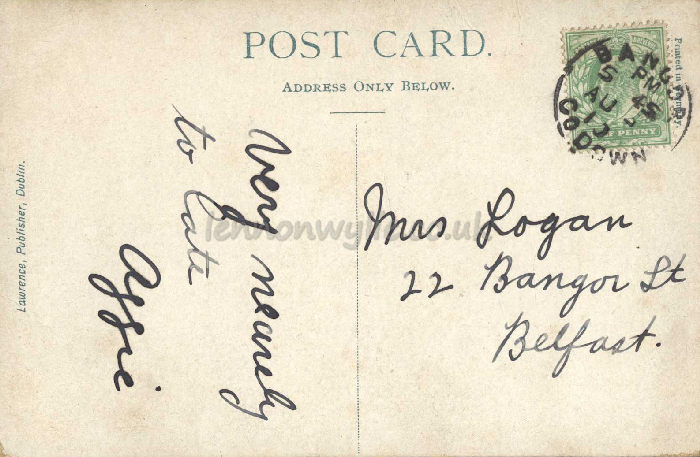 POST CARD.
ADDRESS ONLY BELOW.
Printed in
BANGOR
5 PM 45
AU
CO DOWN
PENNY
Very nearly
to late
Aggie
Mrs Logan
22 Bangor St
Belfast.
Lawrence, Publisher, Dublin.
lennonwylie.co.uk